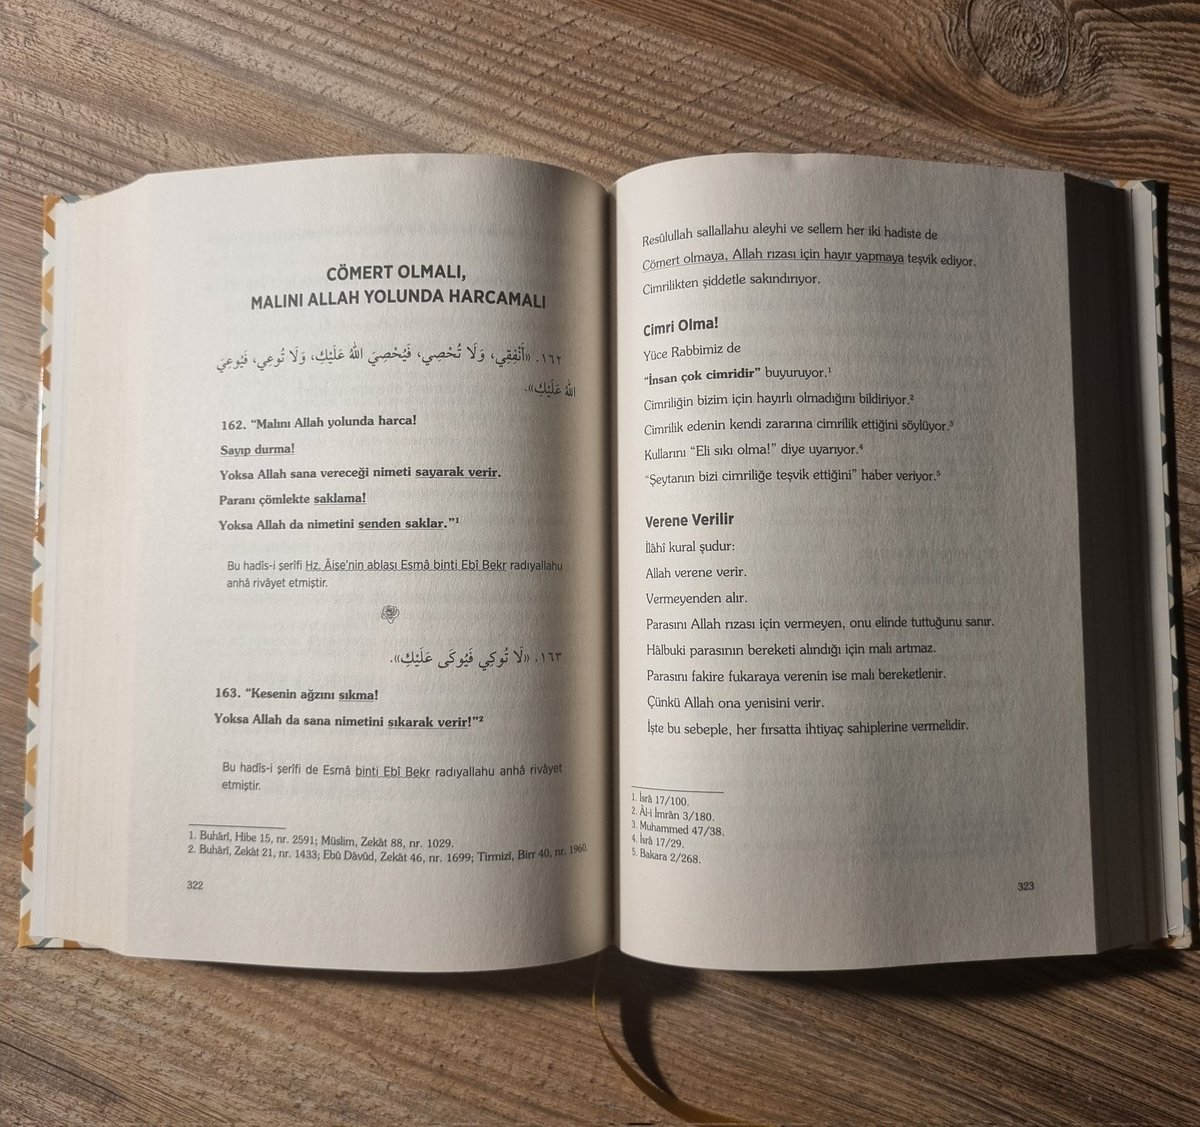 CÖMERT OLMALI,
MALINI ALLAH YOLUNDA HARCAMALI
١٦٢. «أَنْفِقِي، وَلَا تُحْصِي، فَيُحْصِيَ اللهُ عَلَيْكِ، وَلَا تُوعِي، فَيُوعِيَ
اللهُ عَلَيْكِ».
162. “Malını Allah yolunda harca!
Sayıp durma!
Yoksa Allah sana vereceği nimeti sayarak verir.
Paranı çömlekte saklama!
Yoksa Allah da nimetini senden saklar.”¹
Bu hadîs-i şerîfi Hz. Âişe’nin ablası Esmâ binti Ebî Bekr radıyallahu
anhâ rivâyet etmiştir.
١٦٣. «لَا تُوكِي فَيُوكَى عَلَيْكِ».
163. “Kesenin ağzını sıkma!
Yoksa Allah da sana nimetini sıkarak verir!”²
Bu hadîs-i şerîfi de Esmâ binti Ebî Bekr radıyallahu anhâ rivâyet
etmiştir.
1. Buhârî, Hibe 15, nr. 2591; Müslim, Zekât 88, nr. 1029.
2. Buhârî, Zekât 21, nr. 1433; Ebû Dâvûd, Zekât 46, nr. 1699; Tirmizî, Birr 40, nr. 1960.
322
Resûlullah sallallahu aleyhi ve sellem her iki hadiste de
Cömert olmaya, Allah rızası için hayır yapmaya teşvik ediyor.
Cimrilikten şiddetle sakındırıyor.
Cimri Olma!
Yüce Rabbimiz de
“İnsan çok cimridir” buyuruyor.¹
Cimriliğin bizim için hayırlı olmadığını bildiriyor.²
Cimrilik edenin kendi zararına cimrilik ettiğini söylüyor.³
Kullarını “Eli sıkı olma!” diye uyarıyor.⁴
“Şeytanın bizi cimriliğe teşvik ettiğini” haber veriyor.⁵
Verene Verilir
İlâhî kural şudur:
Allah verene verir.
Vermeyenden alır.
Parasını Allah rızası için vermeyen, onu elinde tuttuğunu sanır.
Hâlbuki parasının bereketi alındığı için malı artmaz.
Parasını fakire fukaraya verenin ise malı bereketlenir.
Çünkü Allah ona yenisini verir.
İşte bu sebeple, her fırsatta ihtiyaç sahiplerine vermelidir.
1. İsrâ 17/100.
2. Âl-i İmrân 3/180.
3. Muhammed 47/38.
4. İsrâ 17/29.
5. Bakara 2/268.
323